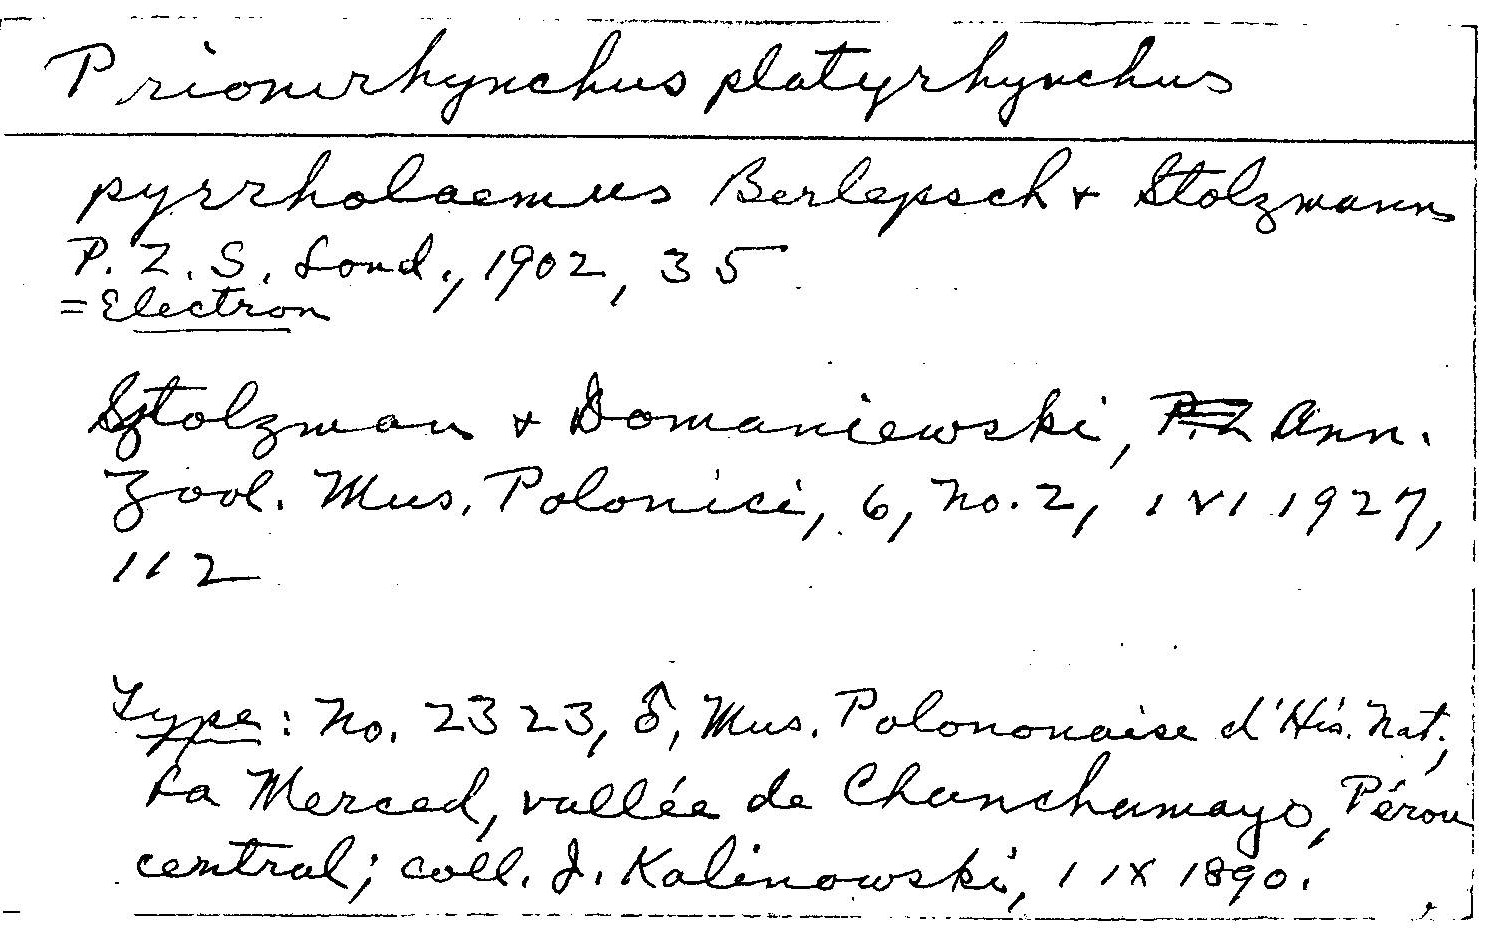 Prionirhynchus platyrhynchus
pyrrholaemus Berlepsch + Stolzmann
P. Z. S. Lond., 1902, 35
= Electron
Sztolzman + Domaniewski, P. Z Ann.
Zool. Mus. Polonici, 6, No. 2, 1 VI 1927,
112
Type: No. 2323, ♂, Mus. Polononaise d'His. Nat.;
La Merced, vallée de Chanchamayo, Pérou
central; coll. J. Kalinowski, 1 IX 1890.